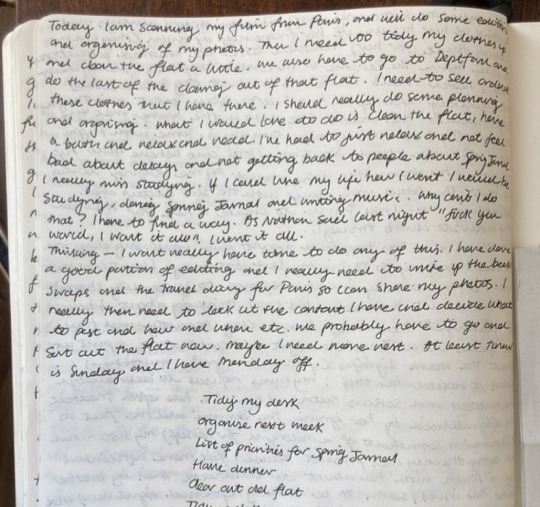 Today I am scanning my film from Paris, and will do some editing
and organising of my photos. Then I need to tidy my clothes
and clean the flat a little. we also have to go to Deptford and
do the last of the cleaning out of that flat. I need to sell
these clothes that I have there. I should really do some planning
and organising. what I would love to do is clean the flat, have
a bath and relax and read. I've had to just relax and not feel
bad about delay and not getting back to people about Spring Journal
I really miss studying. If I could live my life how I want I would be
studying, doing Spring Journal and writing music. Why can't I do
that? I have to find a way. As Nathan said last night "fuck you
world, I want it all". I want it all.
Thinking — I won't really have time to do any of this. I have done
a good portion of editing and I really need to write up the book
swaps and the travel diary for Paris so I can share my photos. I
really then need to look at the content I have and decide what
to post and how and when etc. we probably have to go and
sort out the flat now. Maybe I need more rest. At least
is Sunday and I have Monday off.
Tidy my desk
organise next week
List of priorities for Spring Journal
Have dinner
clear out old flat